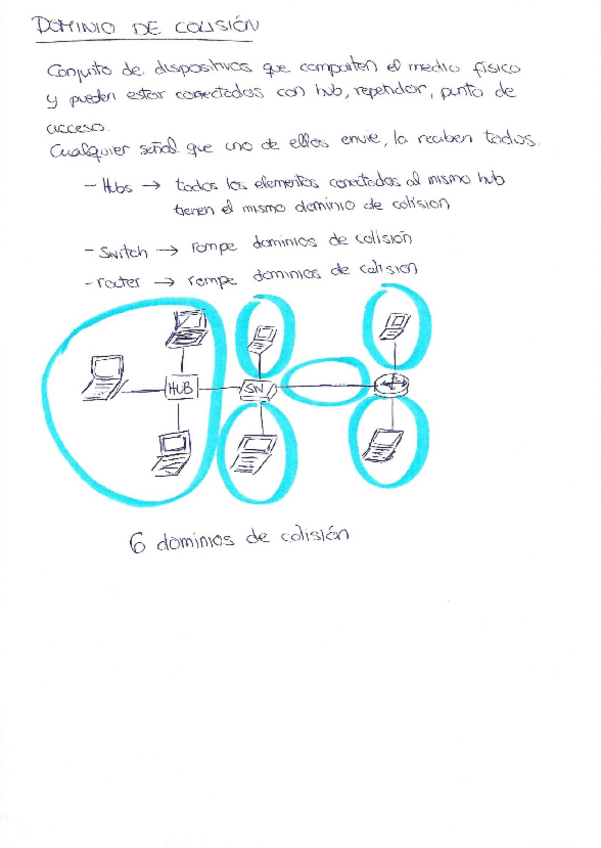 DOMINIO DE COLISIÓN
Conjunto de dispositivos que comparten el medio físico
y pueden estar conectados con hub, repetidor, punto de
acceso.
Cualquier señal que uno de ellos envíe, la reciben todos.
- Hubs → todos los elementos conectados al mismo hub
tienen el mismo dominio de colisión
- Switch → rompe dominios de colisión
- router → rompe dominios de colisión
HUB
SW
6 dominios de colisión